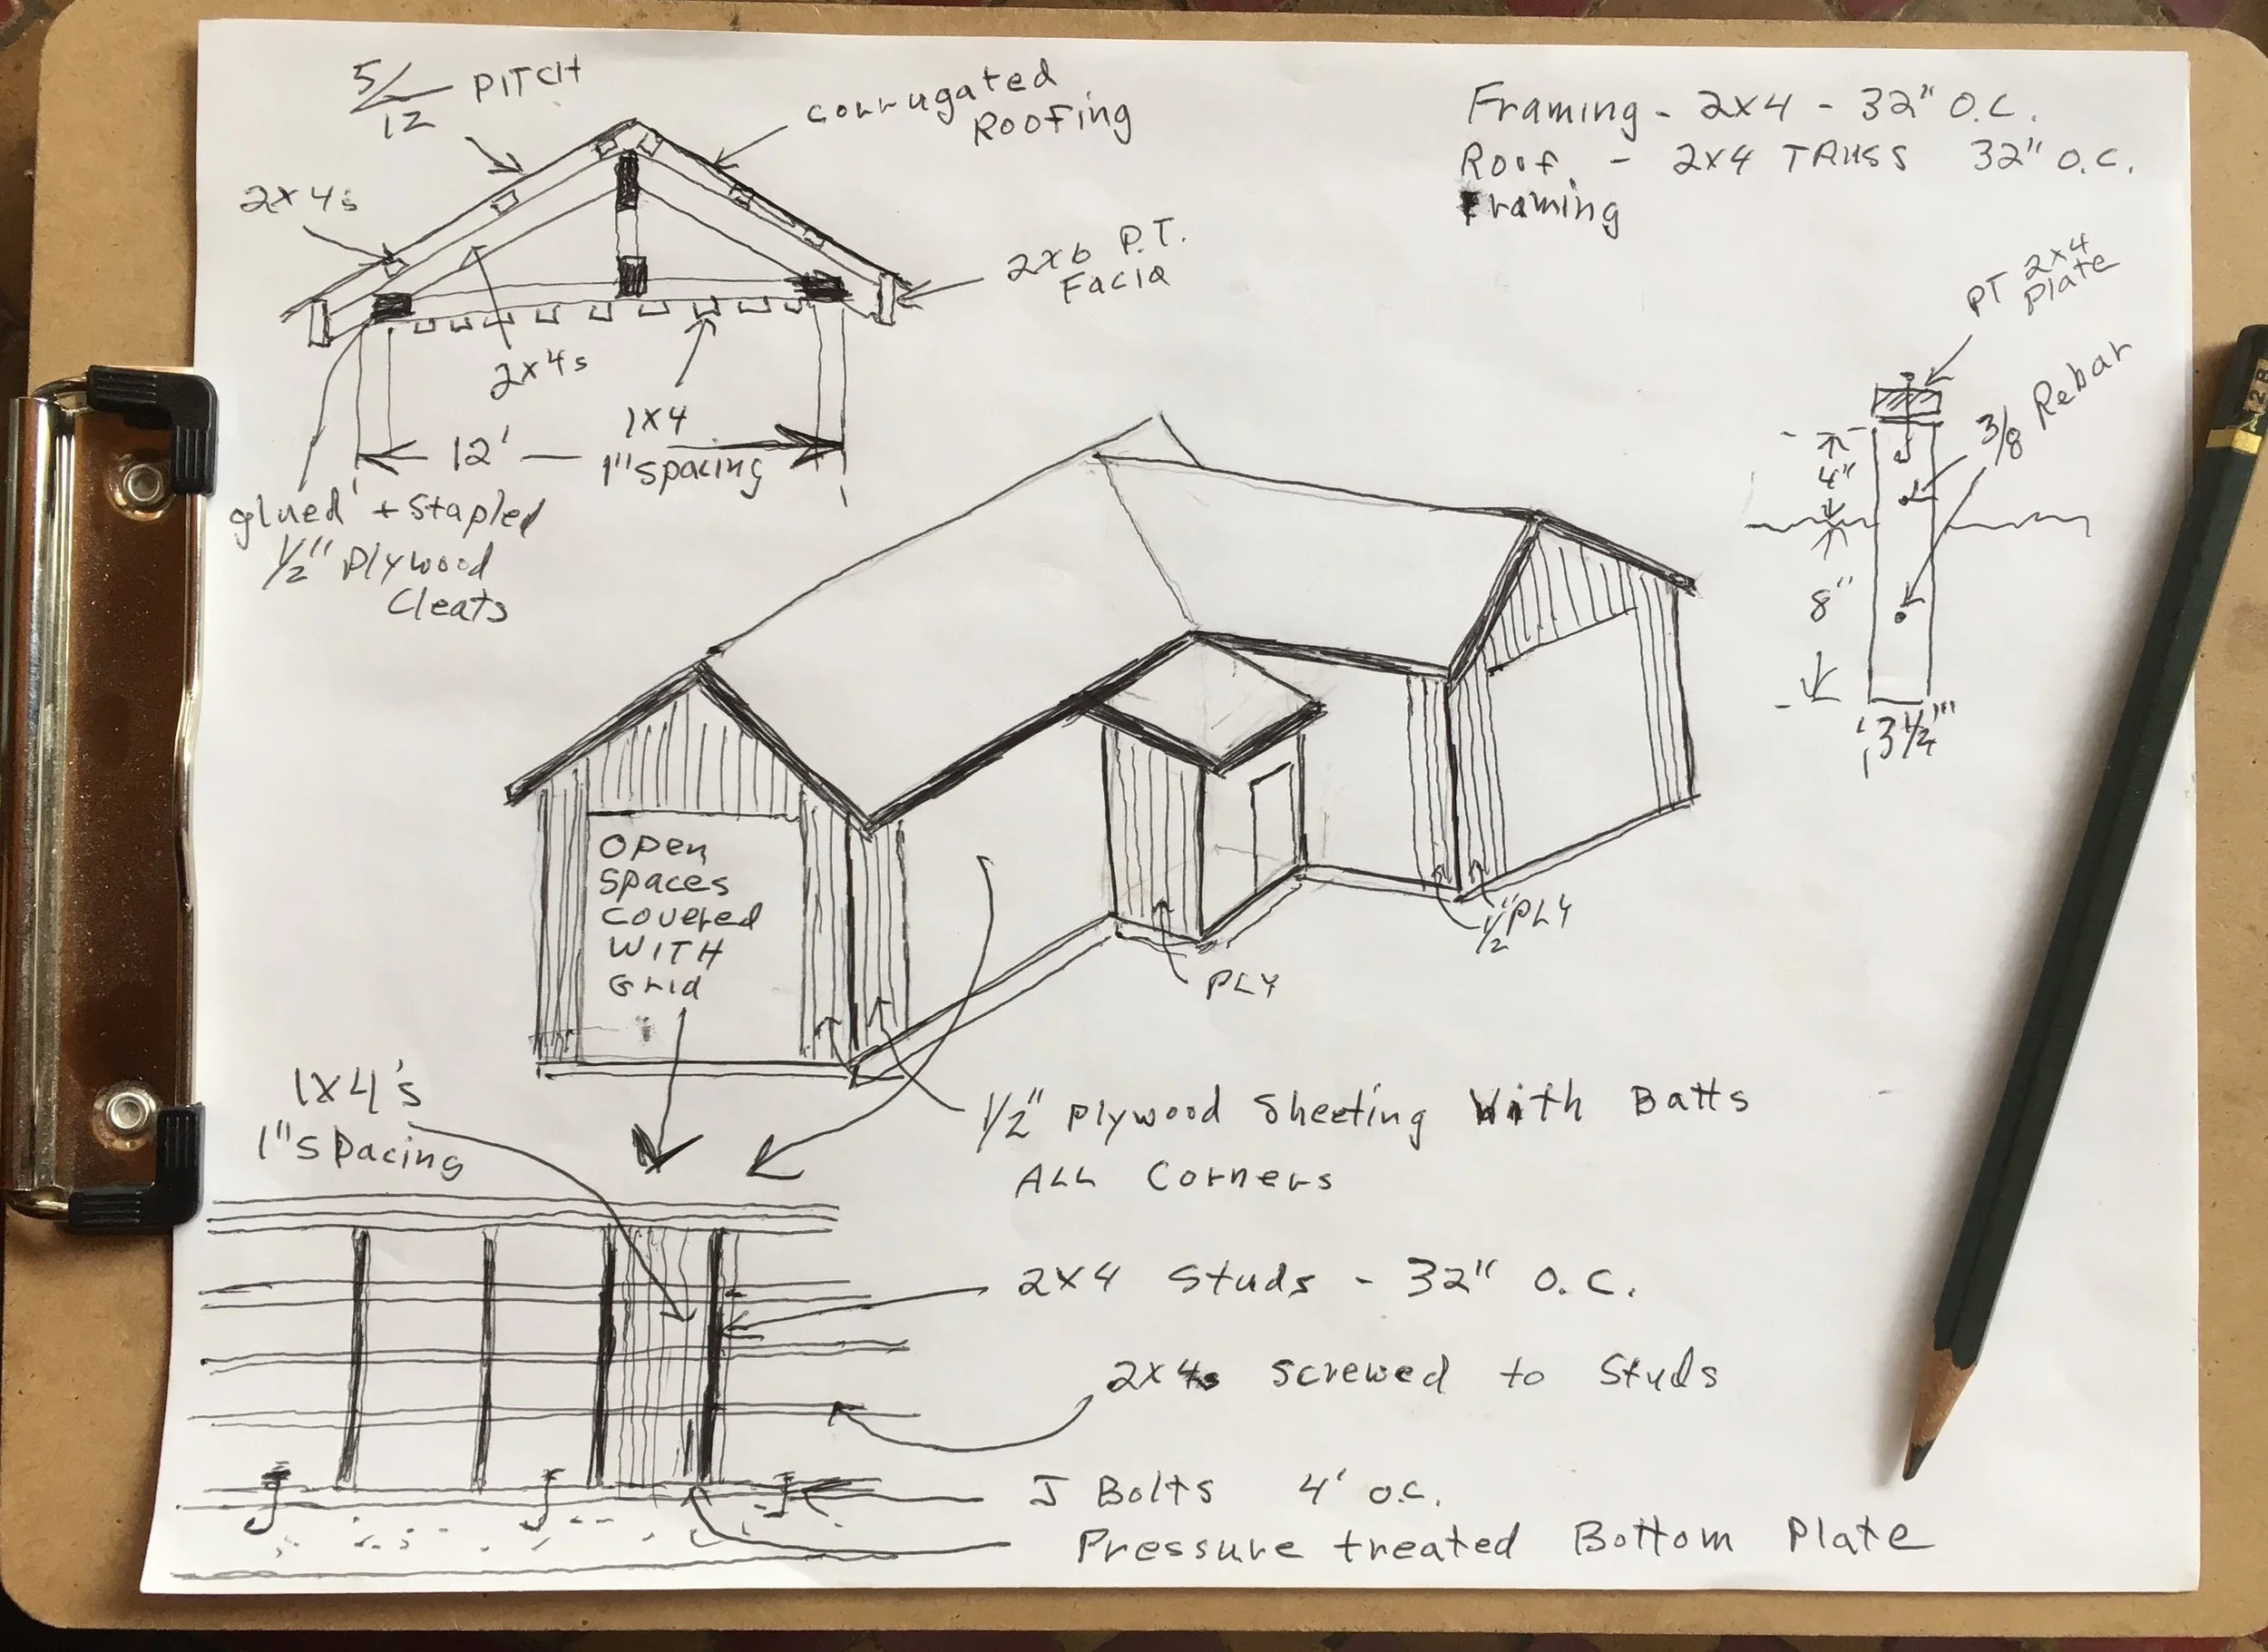 5/12 PITCH
corrugated
Roofing
2x4s
2x6 P.T.
Facia
2x4s
12'
1x4
1" spacing
glued + stapled
1/2" Plywood
Cleats
Framing - 2x4 - 32" O.C.
Roof - 2x4 TRUSS 32" O.C.
Framing
PT 2x4
Plate
3/8 Rebar
4"
8"
3 1/2"
Open
Spaces
Covered
WITH
Grid
1/2" PLY
PLY
1x4's
1" Spacing
1/2" Plywood Sheeting With Batts
ALL Corners
2x4 Studs - 32" O.C.
2x4s screwed to Studs
J Bolts 4' O.C.
Pressure treated Bottom Plate
2B